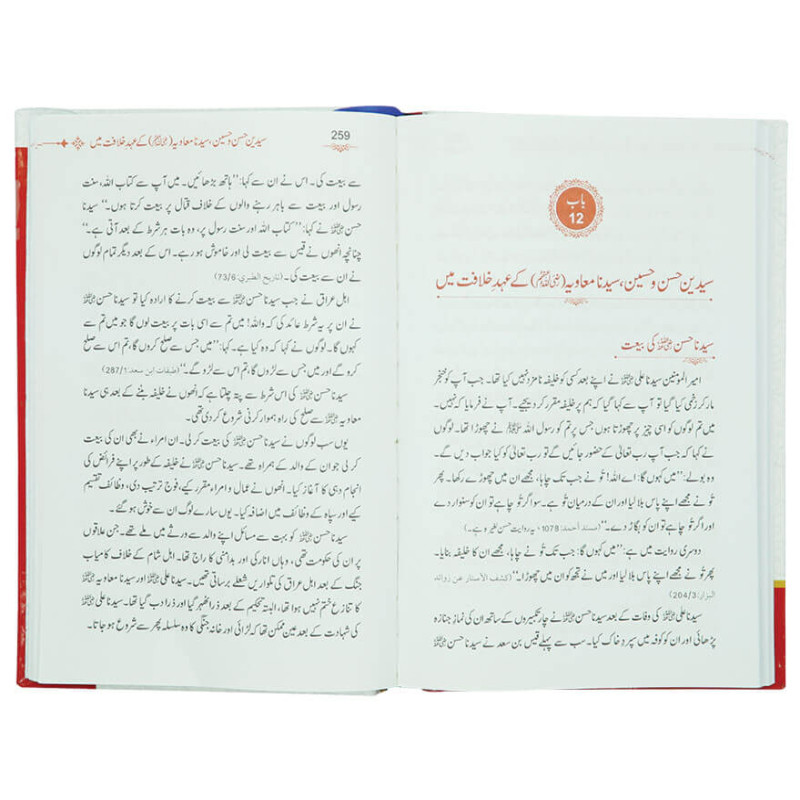 باب
12
سیدین حسن و حسین، سیدنا معاویہ (رضی اللہ عنہم) کے عہدِ خلافت میں
سیدنا حسن رضی اللہ عنہ کی بیعت
امیر المومنین سیدنا علی رضی اللہ عنہ نے اپنے بعد کسی کو خلیفہ نامزد نہیں کیا تھا۔ جب آپ کو خنجر
مار کر زخمی کیا گیا تو آپ سے کہا گیا کہ ہم پر خلیفہ مقرر کر دیجیے۔ آپ نے فرمایا کہ نہیں۔
میں تم لوگوں کو اسی چیز پر چھوڑتا ہوں جس پر تم کو رسول اللہ ﷺ نے چھوڑا تھا۔ لوگوں
نے کہا کہ جب آپ رب تعالی کے حضور جائیں گے تو رب تعالی کو کیا جواب دیں گے۔
وہ بولے: ’’میں کہوں گا: اے اللہ! تُو نے جب تک چاہا، مجھے ان میں چھوڑے رکھا۔ پھر
تُو نے مجھے اپنے پاس بلا لیا اور ان کے درمیان تُو ہے۔ سو اگر تُو چاہے تو ان کو سنوار دے
اور اگر تُو چاہے تو ان کو بگاڑ دے۔‘‘ (مسند أحمد: 1078، یہ روایت حسن لغیرہ ہے۔)
دوسری روایت میں ہے: ’’میں کہوں گا: جب تک تُو نے چاہا، مجھے ان کا خلیفہ بنایا۔
پھر تُو نے مجھے اپنے پاس بلا لیا اور میں نے تجھ کو ان میں چھوڑا۔‘‘ (کشف الأستار عن زوائد
البزار: 204/3)
سیدنا علی رضی اللہ عنہ کی وفات کے بعد سیدنا حسن رضی اللہ عنہ نے چار تکبیروں کے ساتھ ان کی نمازِ جنازہ
پڑھائی اور ان کو کوفہ میں سپردِ خاک کیا۔ سب سے پہلے قیس بن سعد نے سیدنا حسن رضی اللہ عنہ
259
سیدین حسن و حسین، سیدنا معاویہ (رضی اللہ عنہم) کے عہدِ خلافت میں
سے بیعت کی۔ اس نے ان سے کہا: ’’ہاتھ بڑھائیں۔ میں آپ سے کتاب اللہ، سنت
رسول اور بیعت سے باہر رہنے والوں کے خلاف قتال پر بیعت کرتا ہوں۔‘‘ سیدنا
حسن رضی اللہ عنہ نے کہا: ’’کتاب اللہ اور سنت رسول پر، وہ بات ہر شرط کے بعد آتی ہے۔‘‘
چنانچہ انھوں نے قیس سے بیعت لی اور خاموش ہو رہے۔ اس کے بعد دیگر تمام لوگوں
نے ان سے بیعت کی۔ (تاریخ الطبري: 73/6)
اہلِ عراق نے جب سیدنا حسن رضی اللہ عنہ سے بیعت کرنے کا ارادہ کیا تو سیدنا حسن رضی اللہ عنہ
نے ان پر یہ شرط عائد کی کہ واللہ! میں تم سے اسی بات پر بیعت لوں گا جو میں تم سے
کہوں گا۔ لوگوں نے کہا کہ وہ کیا ہے۔ کہا: ’’میں جس سے صلح کروں گا، تم اس سے صلح
کرو گے اور میں جس سے لڑوں گا، تم اس سے لڑو گے۔‘‘ (طبقات ابن سعد: 287/1)
سیدنا حسن رضی اللہ عنہ کی اس شرط سے پتہ چلتا ہے کہ انھوں نے خلیفہ بننے کے بعد ہی سیدنا
معاویہ رضی اللہ عنہ سے صلح کی راہ ہموار کرنی شروع کر دی تھی۔
یوں سب لوگوں نے سیدنا حسن رضی اللہ عنہ کی بیعت کر لی۔ ان امراء نے بھی ان کی بیعت
کر لی جو ان کے والد کے ہمراہ تھے۔ سیدنا حسن رضی اللہ عنہ نے خلیفہ کے طور پر اپنے فرائض کی
انجام دہی کا آغاز کیا۔ انھوں نے عمال و امراء مقرر کیے، فوج ترتیب دی، وظائف تقسیم
کیے اور سپاہ کے وظائف میں اضافہ کیا۔ یوں سارے لوگ ان سے خوش ہو گئے۔
سیدنا حسن رضی اللہ عنہ کو بہت سے مسائل اپنے والد سے ورثے میں ملے تھے۔ جن علاقوں
پر ان کی حکومت تھی، وہاں انارکی اور بدامنی کا راج تھا۔ اہل شام کے خلاف کامیاب
جنگ کے بعد اہل عراق کی تلواریں شعلے برساتی تھیں۔ سیدنا علی رضی اللہ عنہ اور سیدنا معاویہ رضی اللہ عنہ
کا تنازع ختم نہیں ہوا تھا، البتہ تحکیم کے بعد ذرا ٹھہر گیا اور ذرا دب گیا تھا۔ سیدنا علی رضی اللہ عنہ
کی شہادت کے بعد عین ممکن تھا کہ لڑائی اور خانہ جنگی کا وہ سلسلہ پھر سے شروع ہو جاتا۔